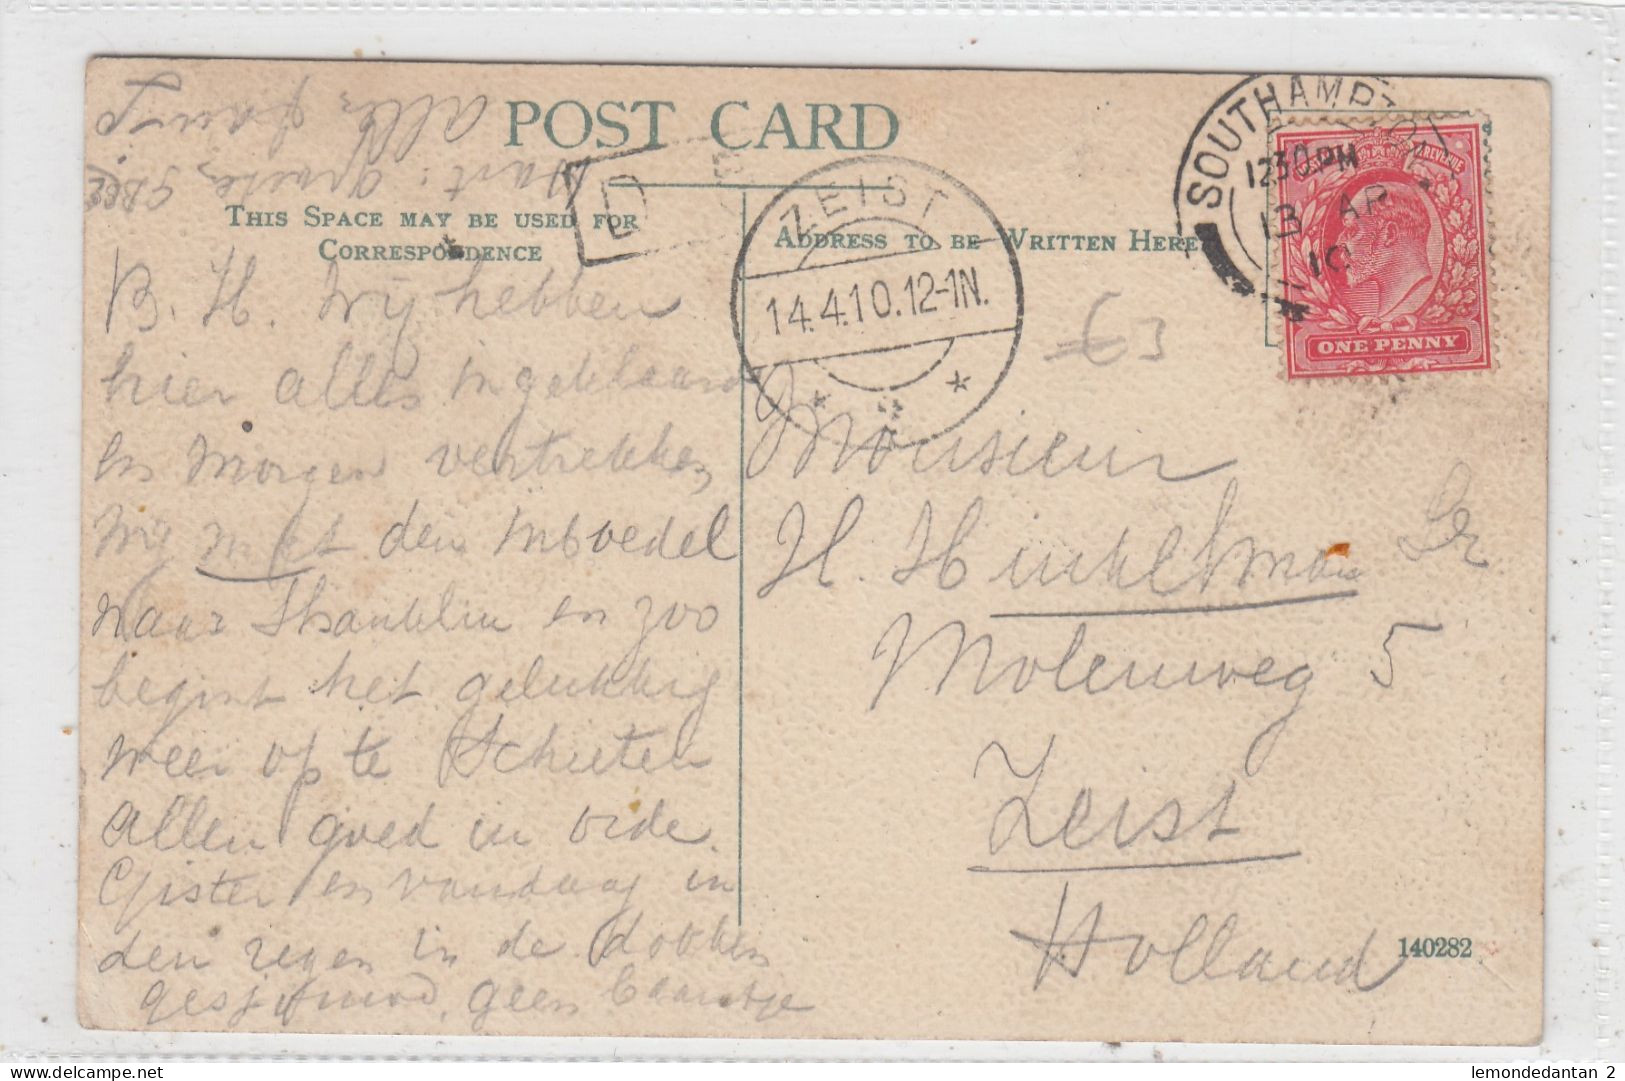 POST CARD
THIS SPACE MAY BE USED FOR
CORRESPONDENCE
ADDRESS TO BE WRITTEN HERE
SOUTHAMPTON
12.30 PM
13 AP
10
REVENUE
ONE PENNY
ZEIST
14.4.10.12-1N.
D
€3
B. H. Wij hebben
hier alles ingeklaard
en morgen vertrekken
wij met den inboedel
naar Shanklin en zoo
begint het gelukkig
weer op te schieten
allen goed in orde.
Gister en vandaag in
den regen in de dokken
geen baantje
Hart. groeten
alle
Monsieur
H. Hinkelman Sr
Molenweg 5
Zeist
Holland
140282
lemondedantan 2